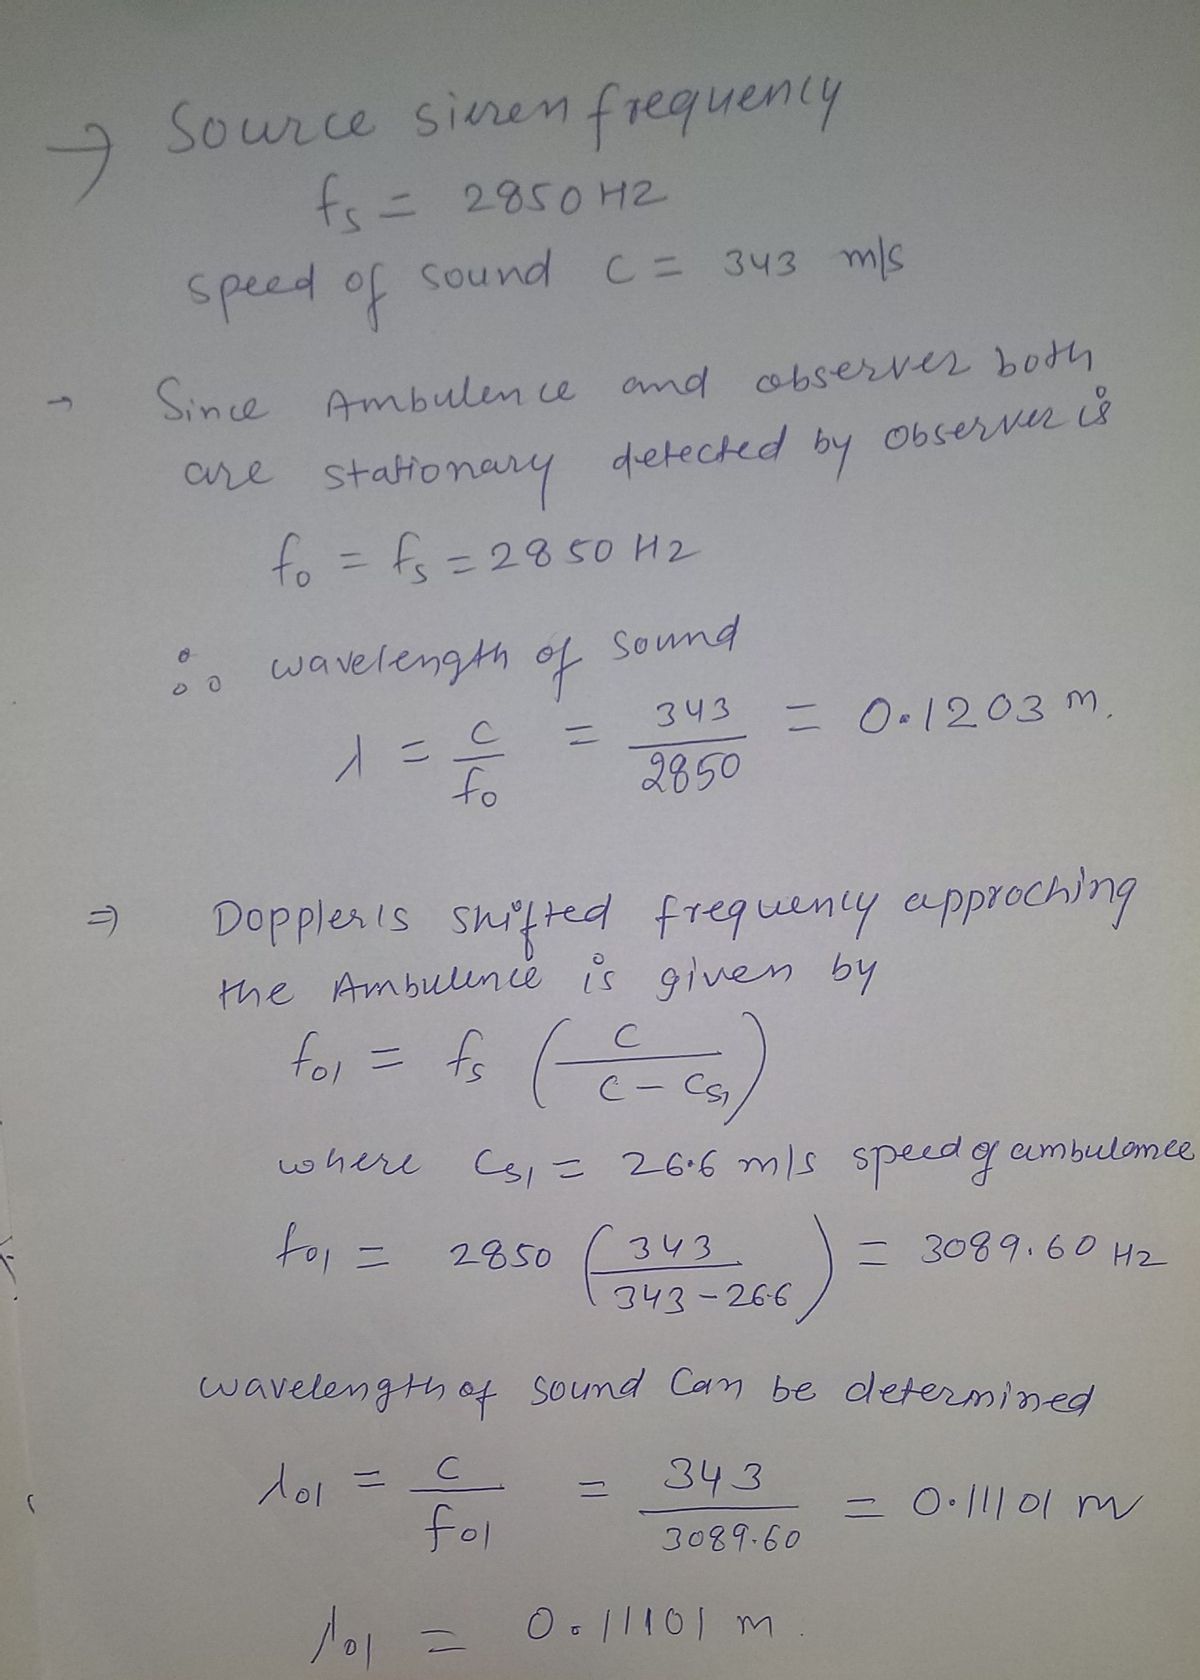 → Source sieren frequency
fs = 2850 Hz
speed of sound c = 343 m/s
→ Since Ambulence and observer both
are stationary detected by observer is
fo = fs = 2850 Hz
∴ wavelength of sound
λ = c/fo = 343/2850 = 0.1203 m.
⇒ Doppler's shifted frequency approching
the Ambulence is given by
fo1 = fs (c/(c - cs1))
where cs1 = 26.6 m/s speed of ambulance
fo1 = 2850 (343/(343 - 26.6)) = 3089.60 Hz
wavelength of sound can be determined
λo1 = c/fo1 = 343/3089.60 = 0.11101 m
λo1 = 0.11101 m.